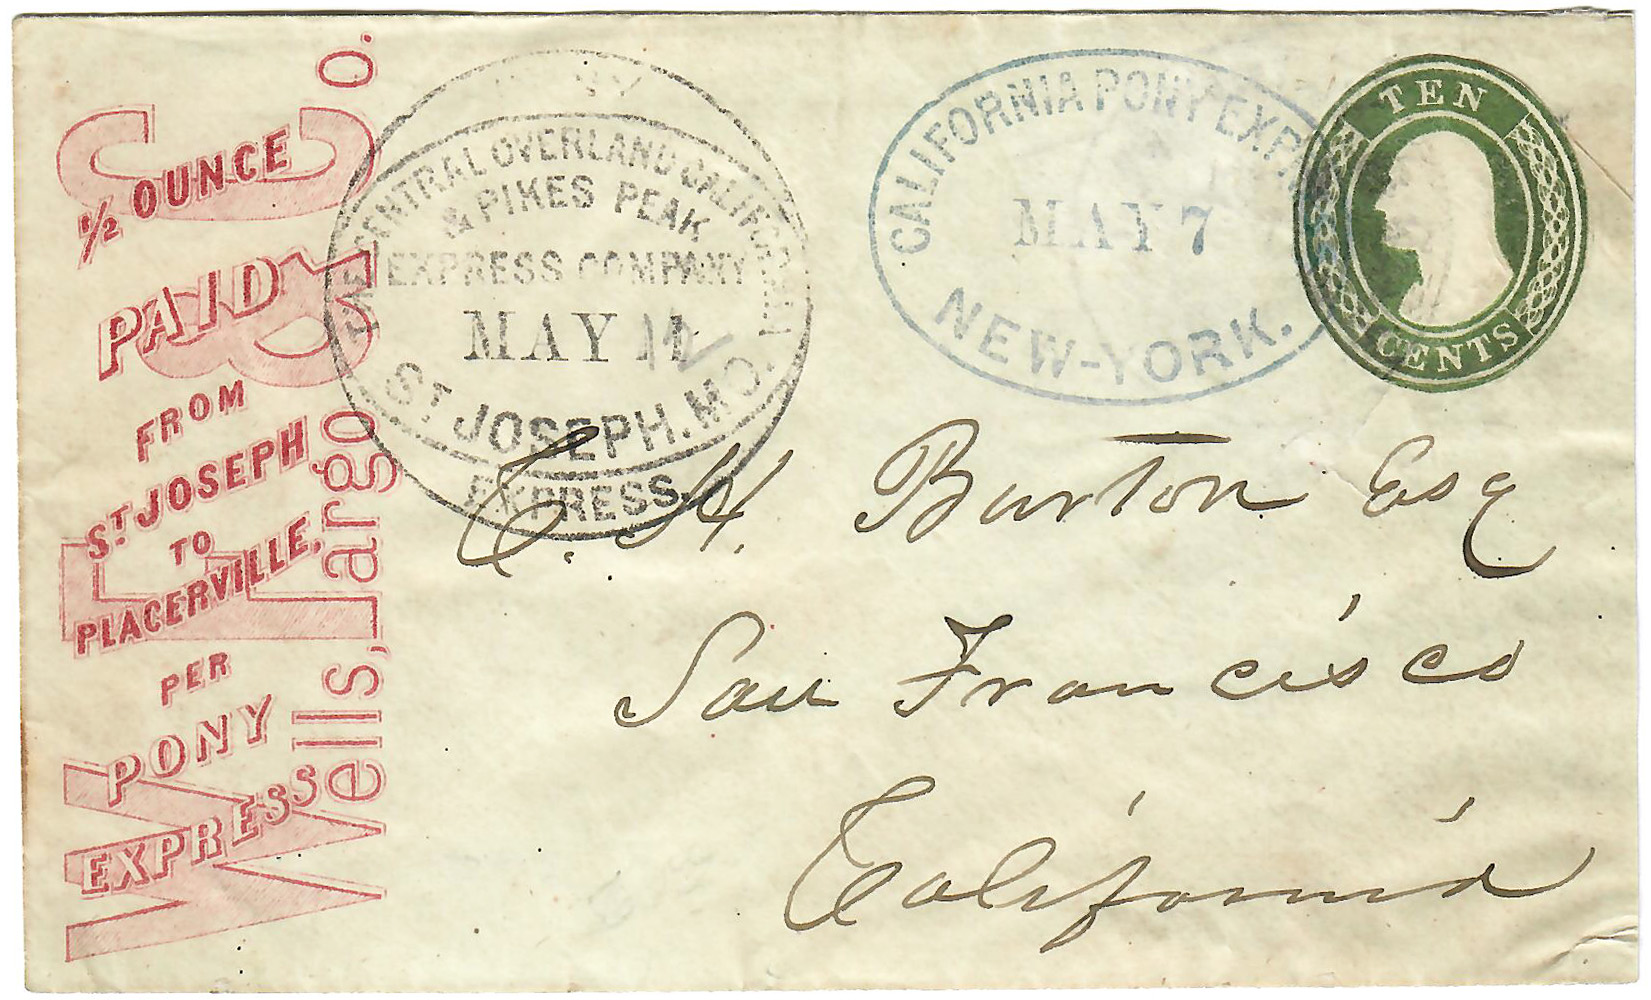 Wells, Fargo & Co.
½ OUNCE
PAID
FROM
ST JOSEPH
TO
PLACERVILLE,
PER
PONY
EXPRESS
THE CENTRAL OVERLAND CALIFORNIA
& PIKES PEAK
EXPRESS COMPANY
MAY
ST JOSEPH. MO.
EXPRESS.
CALIFORNIA PONY EXPRESS
MAY 7
NEW-YORK.
TEN
CENTS
C. H. Burton Esq
San Francisco
California